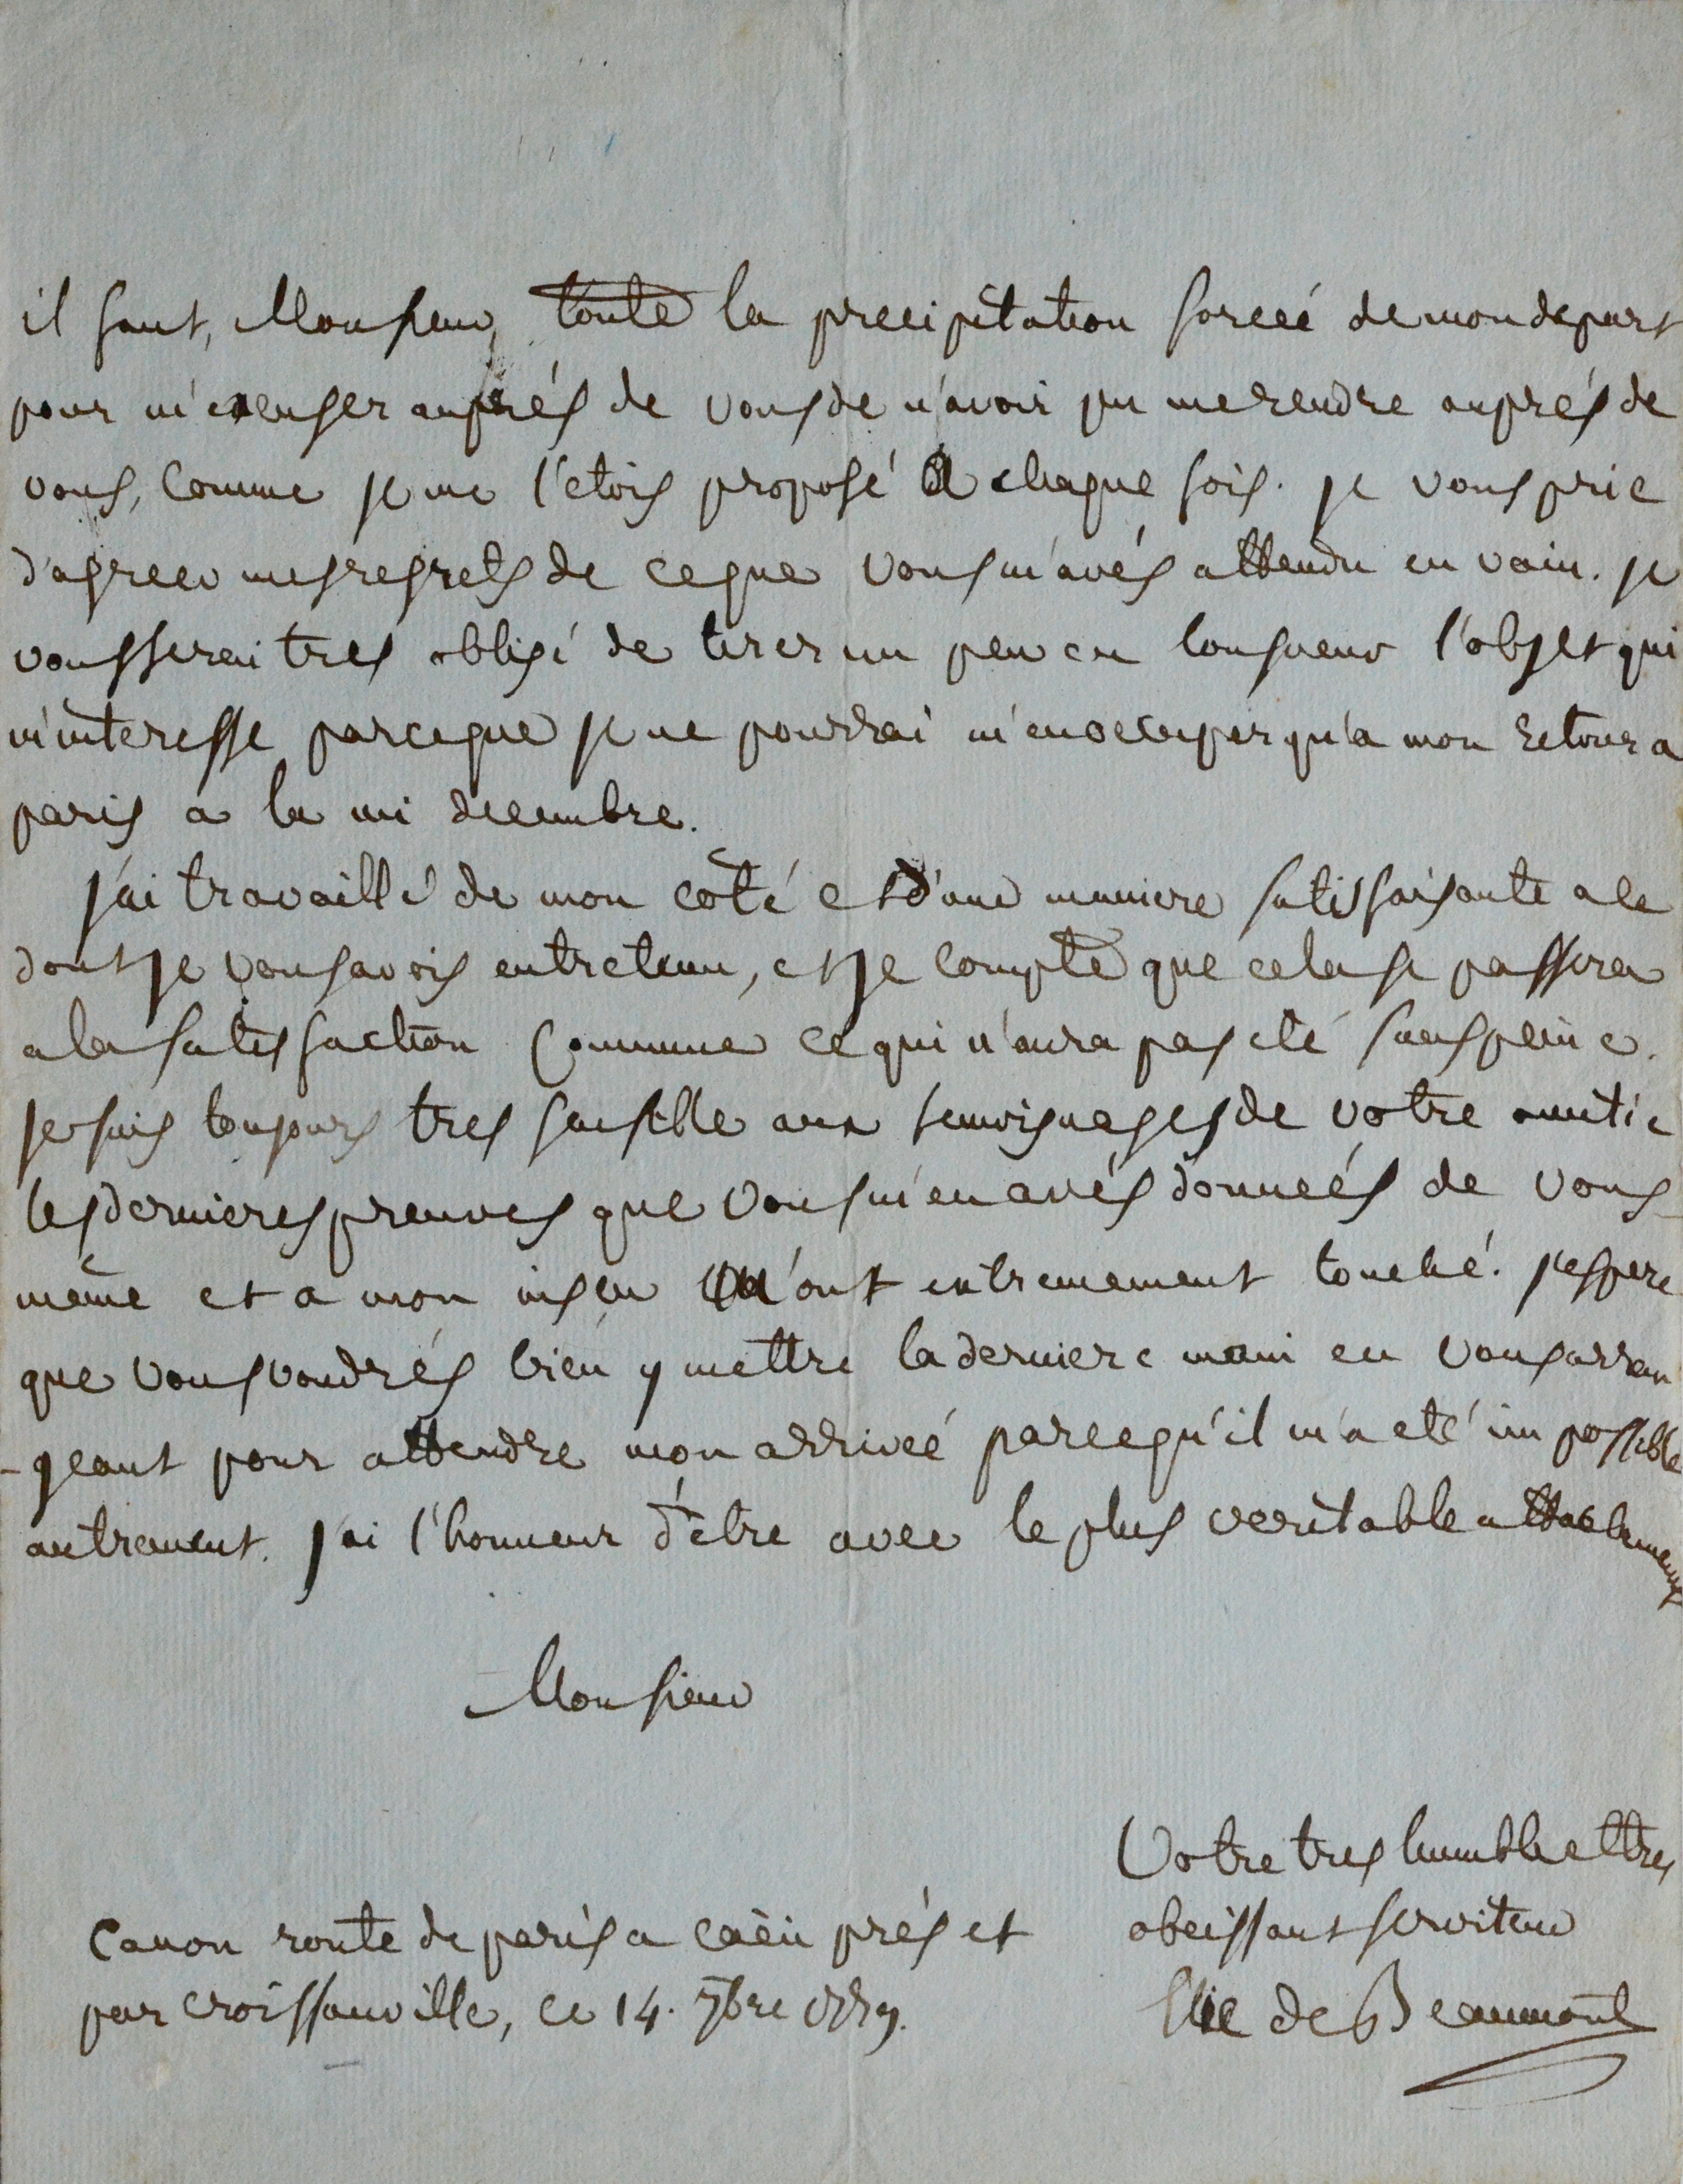 il faut, Monsieur, toute la precipitation forcée de mon depart
pour m'excuser auprés de vous de n'avoir pu me rendre auprés de
vous, comme je me l'etois proposé a chaque fois. je vous prie
d'agreer mes regrets de ce que vous m'avés attendu en vain. je
vous serai tres obligé de tirer un peu en longueur l'objet qui
m'interesse parceque je ne pourrai m'en occuper qu'a mon retour a
paris a la mi decembre.
j'ai travaillé de mon coté et d'une maniere satisfaisante a ce
dont je vous avois entretenu, et je compte que cela se passera
a la satisfaction commune ce qui n'aura pas eté sans peine.
je suis toujours tres sensible aux temoignages de votre amitie
les dernieres preuves que vous m'en avés données de vous-
même et a mon insçu m'ont extremement touché. j'espere
que vous voudrés bien y mettre la derniere main en vous arran
-geant pour attendre mon arrivée parcequ'il m'a eté impossible
autrement. j'ai l'honneur d'être avec le plus veritable attachement
Monsieur
Votre tres humble et tres
obeissant serviteur
Elie de Beaumont
Canon route de paris a caën prés et
par croissanville, ce 14. 7bre